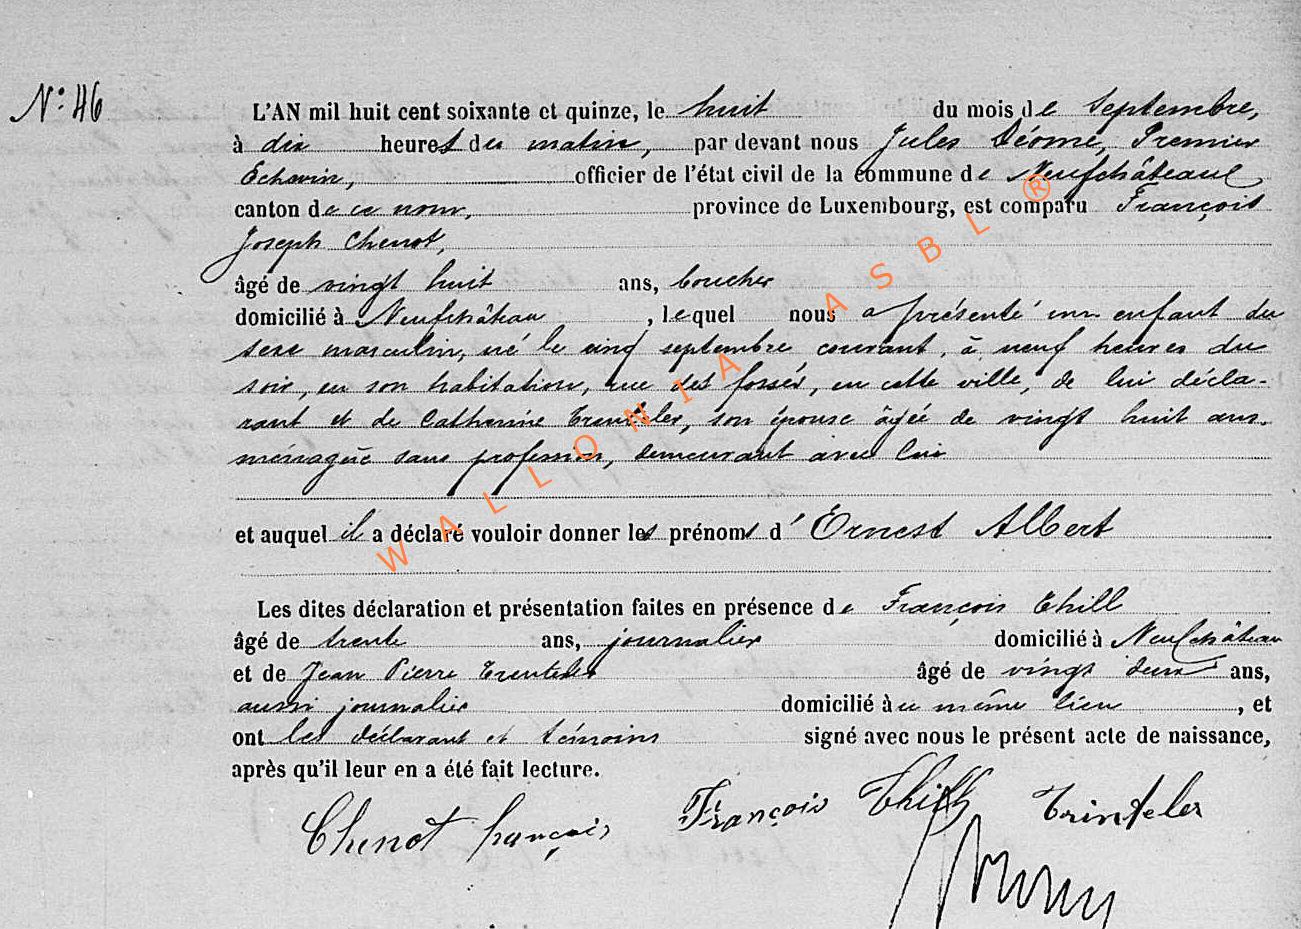 N° 46
L'AN mil huit cent soixante et quinze, le huit du mois de Septembre,
à dix heures du matin, par devant nous Jules Déome, Premier
Echevin, officier de l'état civil de la commune de Neufchâteau
canton de ce nom, province de Luxembourg, est comparu François
Joseph Chenot,
âgé de vingt huit ans, boucher
domicilié à Neufchâteau, lequel nous a présenté un enfant du
sexe masculin, né le cinq septembre courant, à neuf heures du
soir, en son habitation, rue des fossés, en cette ville, de lui décla-
rant et de Catherine Trenteler, son épouse âgée de vingt huit ans.
ménagère sans profession, demeurant avec lui
et auquel il a déclaré vouloir donner les prénoms d'Ernest Albert
Les dites déclaration et présentation faites en présence de François Thill
âgé de trente ans, journalier domicilié à Neufchâteau
et de Jean Pierre Trenteler âgé de vingt deux ans,
aussi journalier domicilié au même lieu, et
ont les déclarant et témoins signé avec nous le présent acte de naissance,
après qu'il leur en a été fait lecture.
Chenot françois François Thill Trinteler
WALLONIA ASBL ®